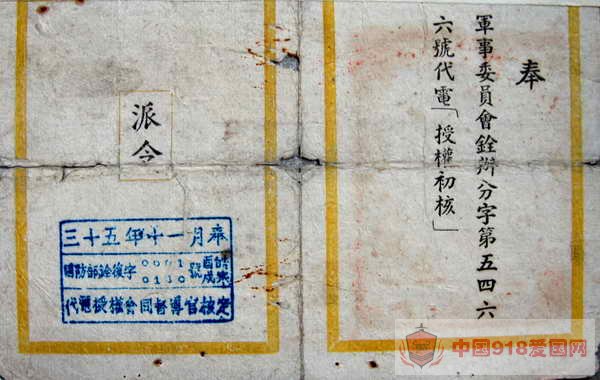 奉
軍事委員會銓辦分字第五四六
六號代電「授權初核」
派令
三十五年十一月奉
國防部銓 字 號
代電授權會同督導官核定
中国918爱国网